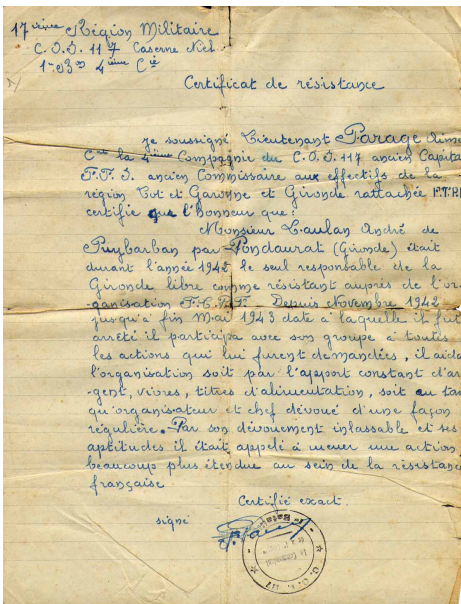 17ième Région Militaire
C.O.I. 117 Caserne Niel
1er Bon 4ième Cie
Certificat de résistance
Je soussigné Lieutenant Parage Aimé
Cdt la 4ième Compagnie du C.O.I. 117 ancien Capitai
F.F.I. ancien Commissaire aux effectifs de la
région Lot et Garonne et Gironde rattachée F.T.P.
certifie sur l'honneur que:
Monsieur Laulan André de
Puybarban par Pondaurat (Gironde) était
durant l'année 1942 le seul responsable de la
Gironde libre comme résistant auprès de l'or
ganisation F.T.P.F. Depuis Novembre 1942
jusqu'à fin Mai 1943 date à laquelle il fut
arrêté il participa avec son groupe à toutes
les actions qui lui furent demandées, il aida
l'organisation soit par l'apport constant d'ar
gent, vivres, titres d'alimentation, soit en tan
qu'organisateur et chef dévoué d'une façon
régulière. Par son dévouement inlassable et ses
aptitudes il était appelé à mener une action
beaucoup plus étendue au sein de la résistance
française
Certifié exact.
signé
C.O.I. 117